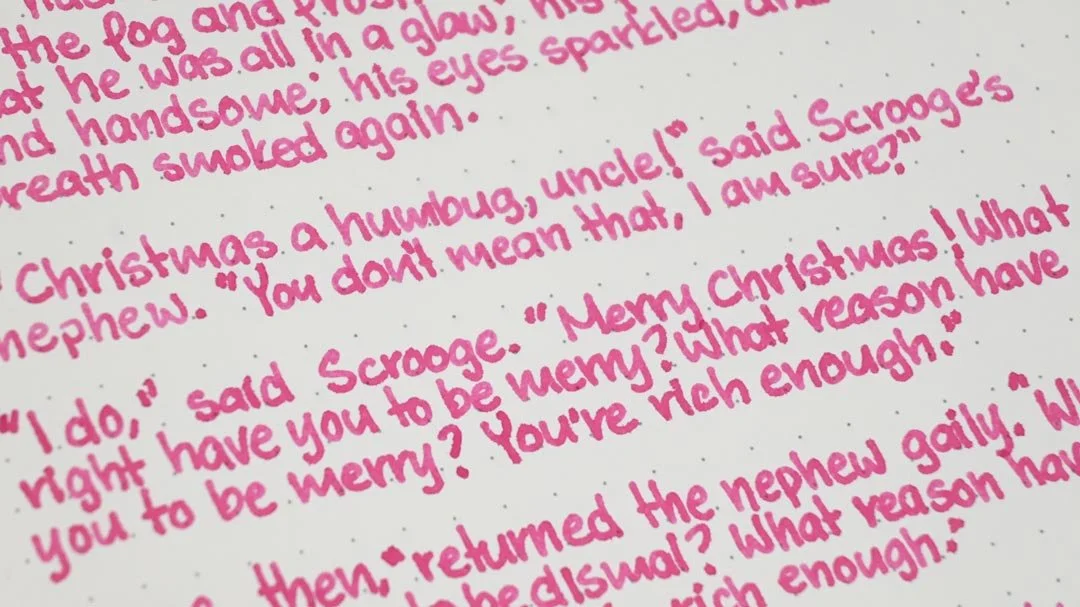 the fog and
at he was all in a glow; his
nd handsome; his eyes sparkled,
breath smoked again.
Christmas a humbug, uncle!" said Scrooge's
nephew. "You don't mean that, I am sure?"
"I do," said Scrooge. "Merry Christmas! What
right have you to be merry? What reason have
you to be merry? You're rich enough."
then," returned the nephew gaily. "
be dismal? What reason hav
rich enough."